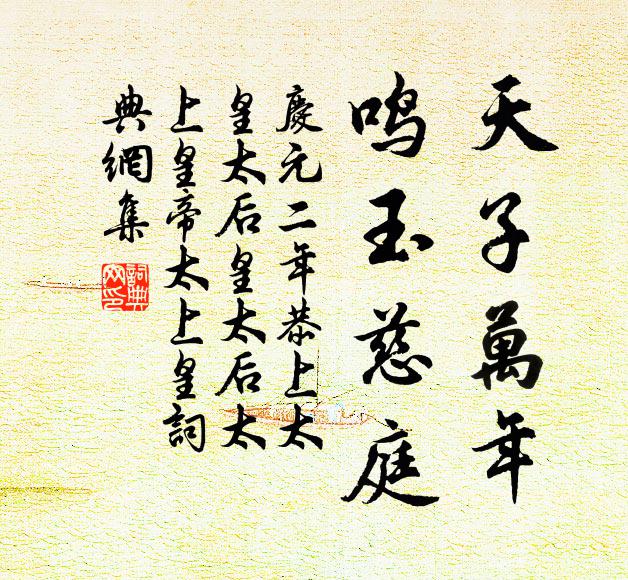 天子萬年
鸣玉慈庭
慶元二年恭上太
皇太后皇太后太
上皇帝太上皇詞
典網集
詞典网印